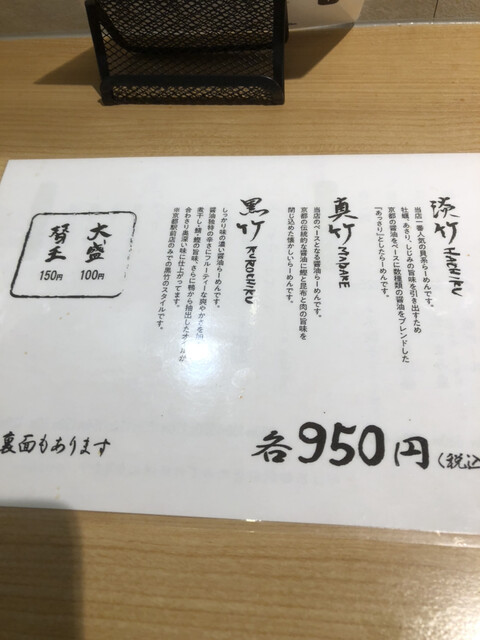 淡竹 HACHIKU
当店一番人気の貝系らーめんです。
牡蠣、あさり、しじみの旨味を引き出すため
京都の醤油をベースに数種類の醤油をブレンドした
「あっさり」としたらーめんです。
真竹 MADAKE
当店のベースとなる醤油らーめんです。
京都の伝統的な醤油に鰹と昆布と肉の旨味を
閉じ込めた懐かしいらーめんです。
黒竹 KUROCHIKU
しっかり味の濃い醤油らーめんです。
醤油独特の辛さにフルーティーな爽やかさを
煮干し・鯖・鰹の旨味、さらに鴨から抽出したオイルが
合わさり奥深い味に仕上がってます。
※京都駅前店のみでの黒竹のスタイルです。
大盛 100円
替玉 150円
各950円(税込
裏面もあります